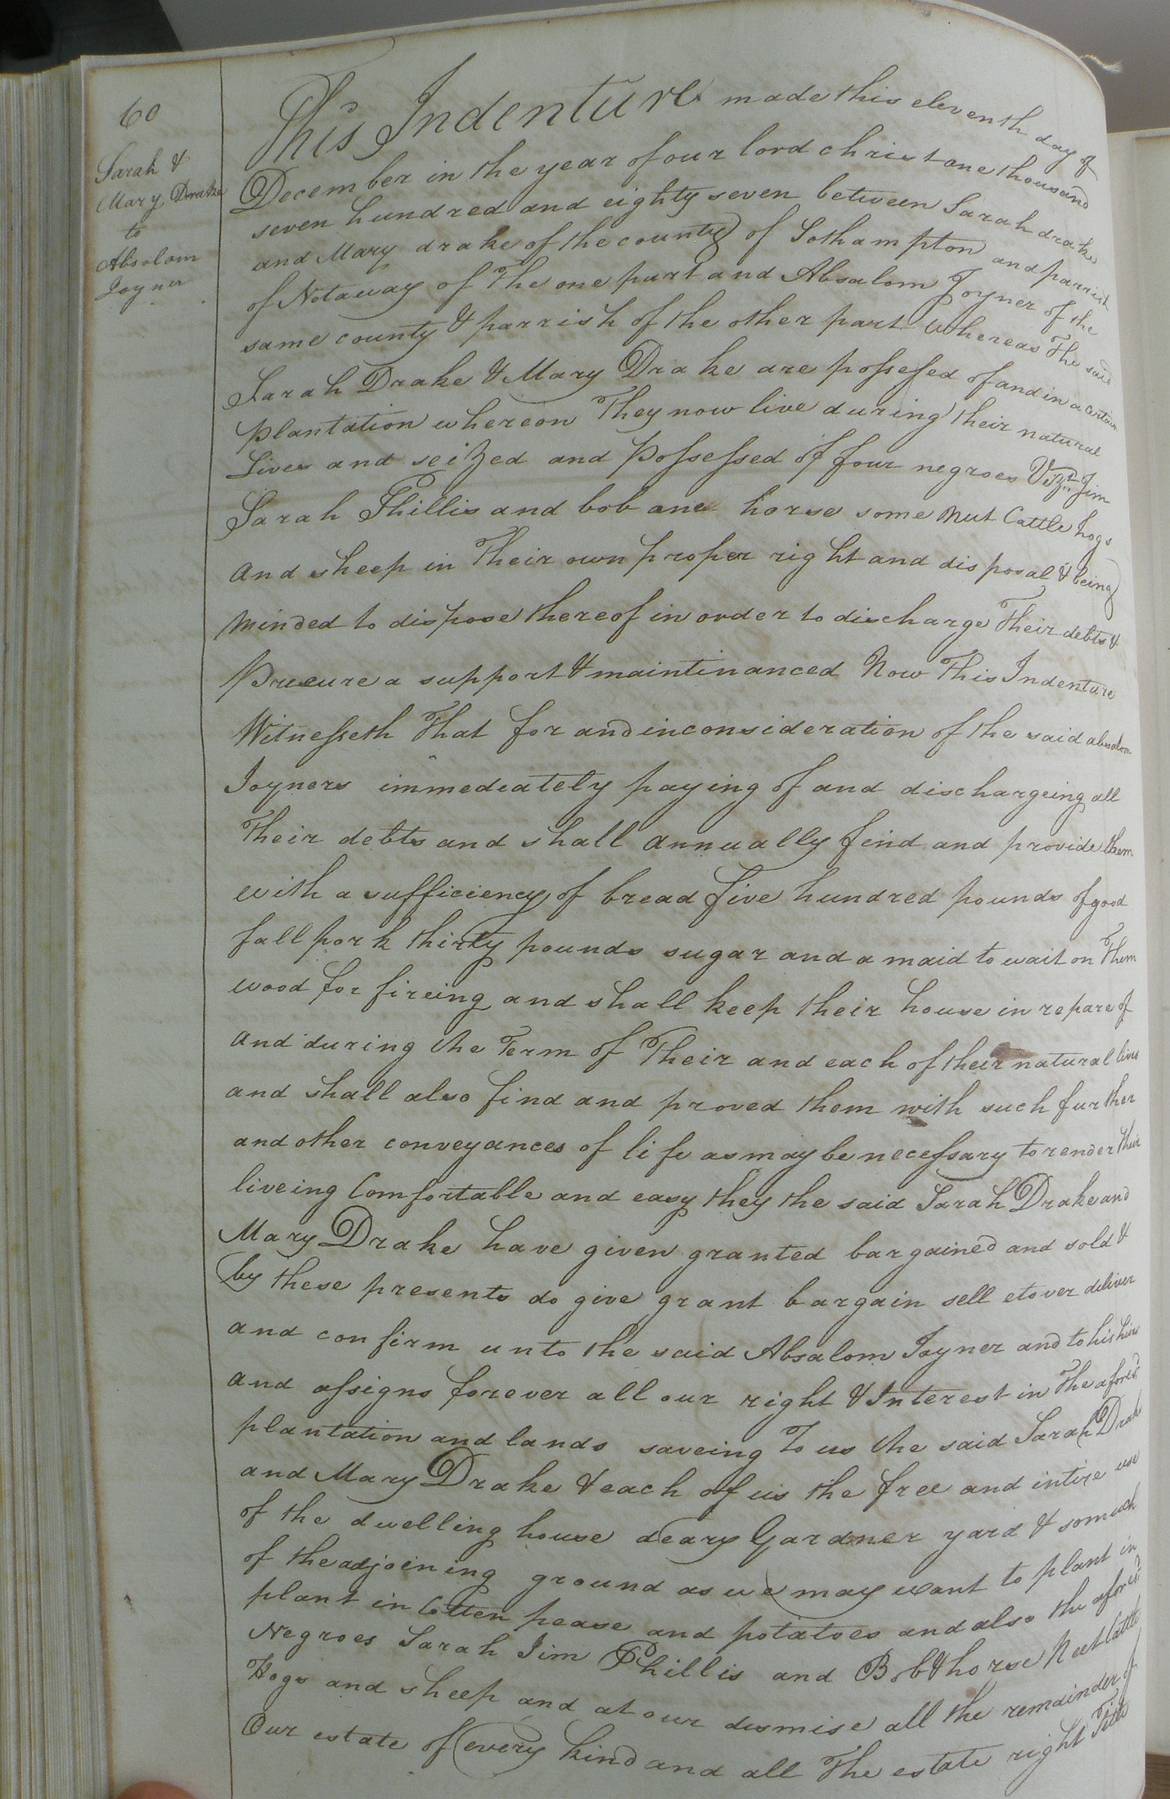 60
Sarah &
Mary Drake
to
Absolom
Joyner
This Indenture made this eleventh day of
December in the year of our lord christ one thousand
seven hundred and eighty seven between Sarah drake
and Mary drake of the county of Sothampton and parrish
of Notaway of the one part and Absalom Joyner of the
same county & parrish of the other part Whereas The said
Sarah Drake & Mary Drake are possesed of and in a certain
plantation whereon They now live during their natural
Lives and seized and possessed of four negroes Vizt Jim
Sarah Phillis and bob one horse some nut Cattle hogs
and sheep in Their own proper right and disposal & being
minded to dispose thereof in order to discharge Their debts &
Precure a support & maintinanced Now This Indenture
Witnesseth That for and inconsideration of the said absolom
Joyners immedeately paying of and dischargeing all
Their debts and shall annually find and provide them
with a sufficiency of bread five hundred pounds of good
fall pork thirty pounds sugar and a maid to wait on Them
wood for fireing and shall keep their house in repare of
and during the Term of Their and each of their natural lives
and shall also find and proved them with such further
and other conveyances of life as may be necessary to render their
liveing Comfortable and easy they the said Sarah Drake and
Mary Drake have given granted bargained and sold &
by these presents do give grant bargain sell etover deliver
and confirm unto the said Absalom Joyner and to his heirs
and assigns forever all our right & Interest in The aforesd
plantation and lands saveing To us the said Sarah Drake
and Mary Drake & each of us the free and intire use
of the dwelling house deary Gardner yard & somuch
of the adjoining ground as we may want to plant in
plant in Cotten pease and potatoes and also the aforesd
Negroes Sarah Jim Phillis and Bob & horse Neet Cattle
Hogs and sheep and at our desmise all the remainder of
Our estate of every kind and all The estate right Title